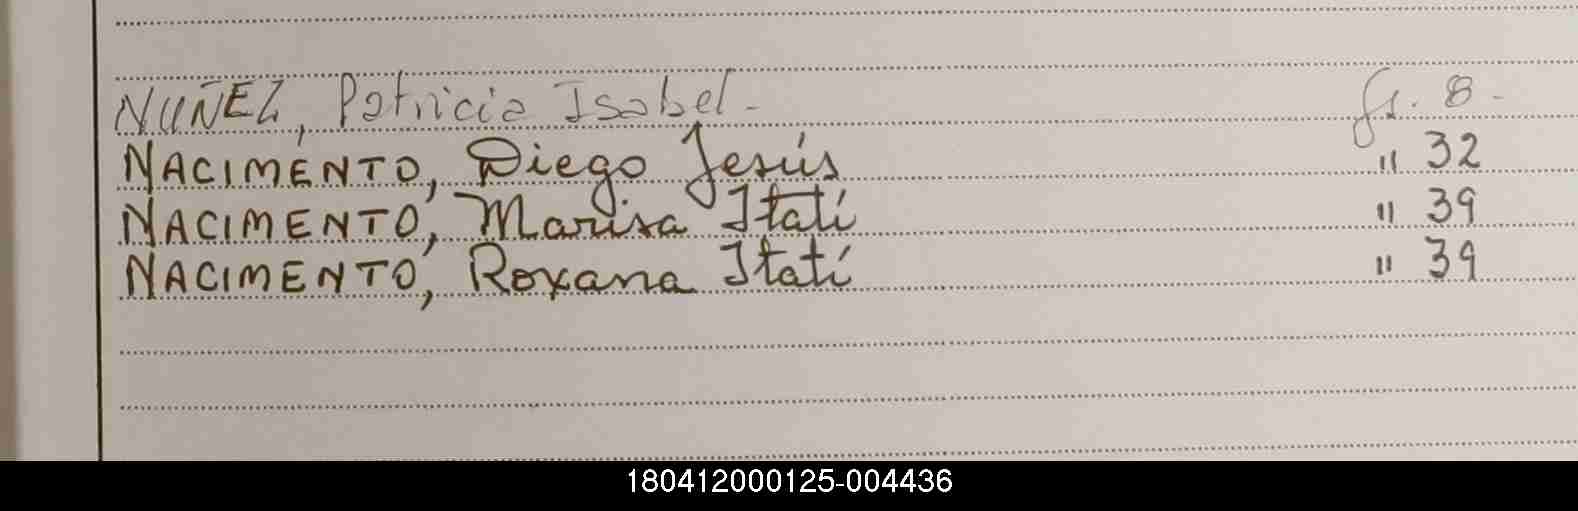 NUÑEZ, Patricia Isabel - fs. 8 -
NACIMENTO, Diego Jesús " 32
NACIMENTO, Marisa Itatí " 39
NACIMENTO, Roxana Itatí " 39
180412000125-004436